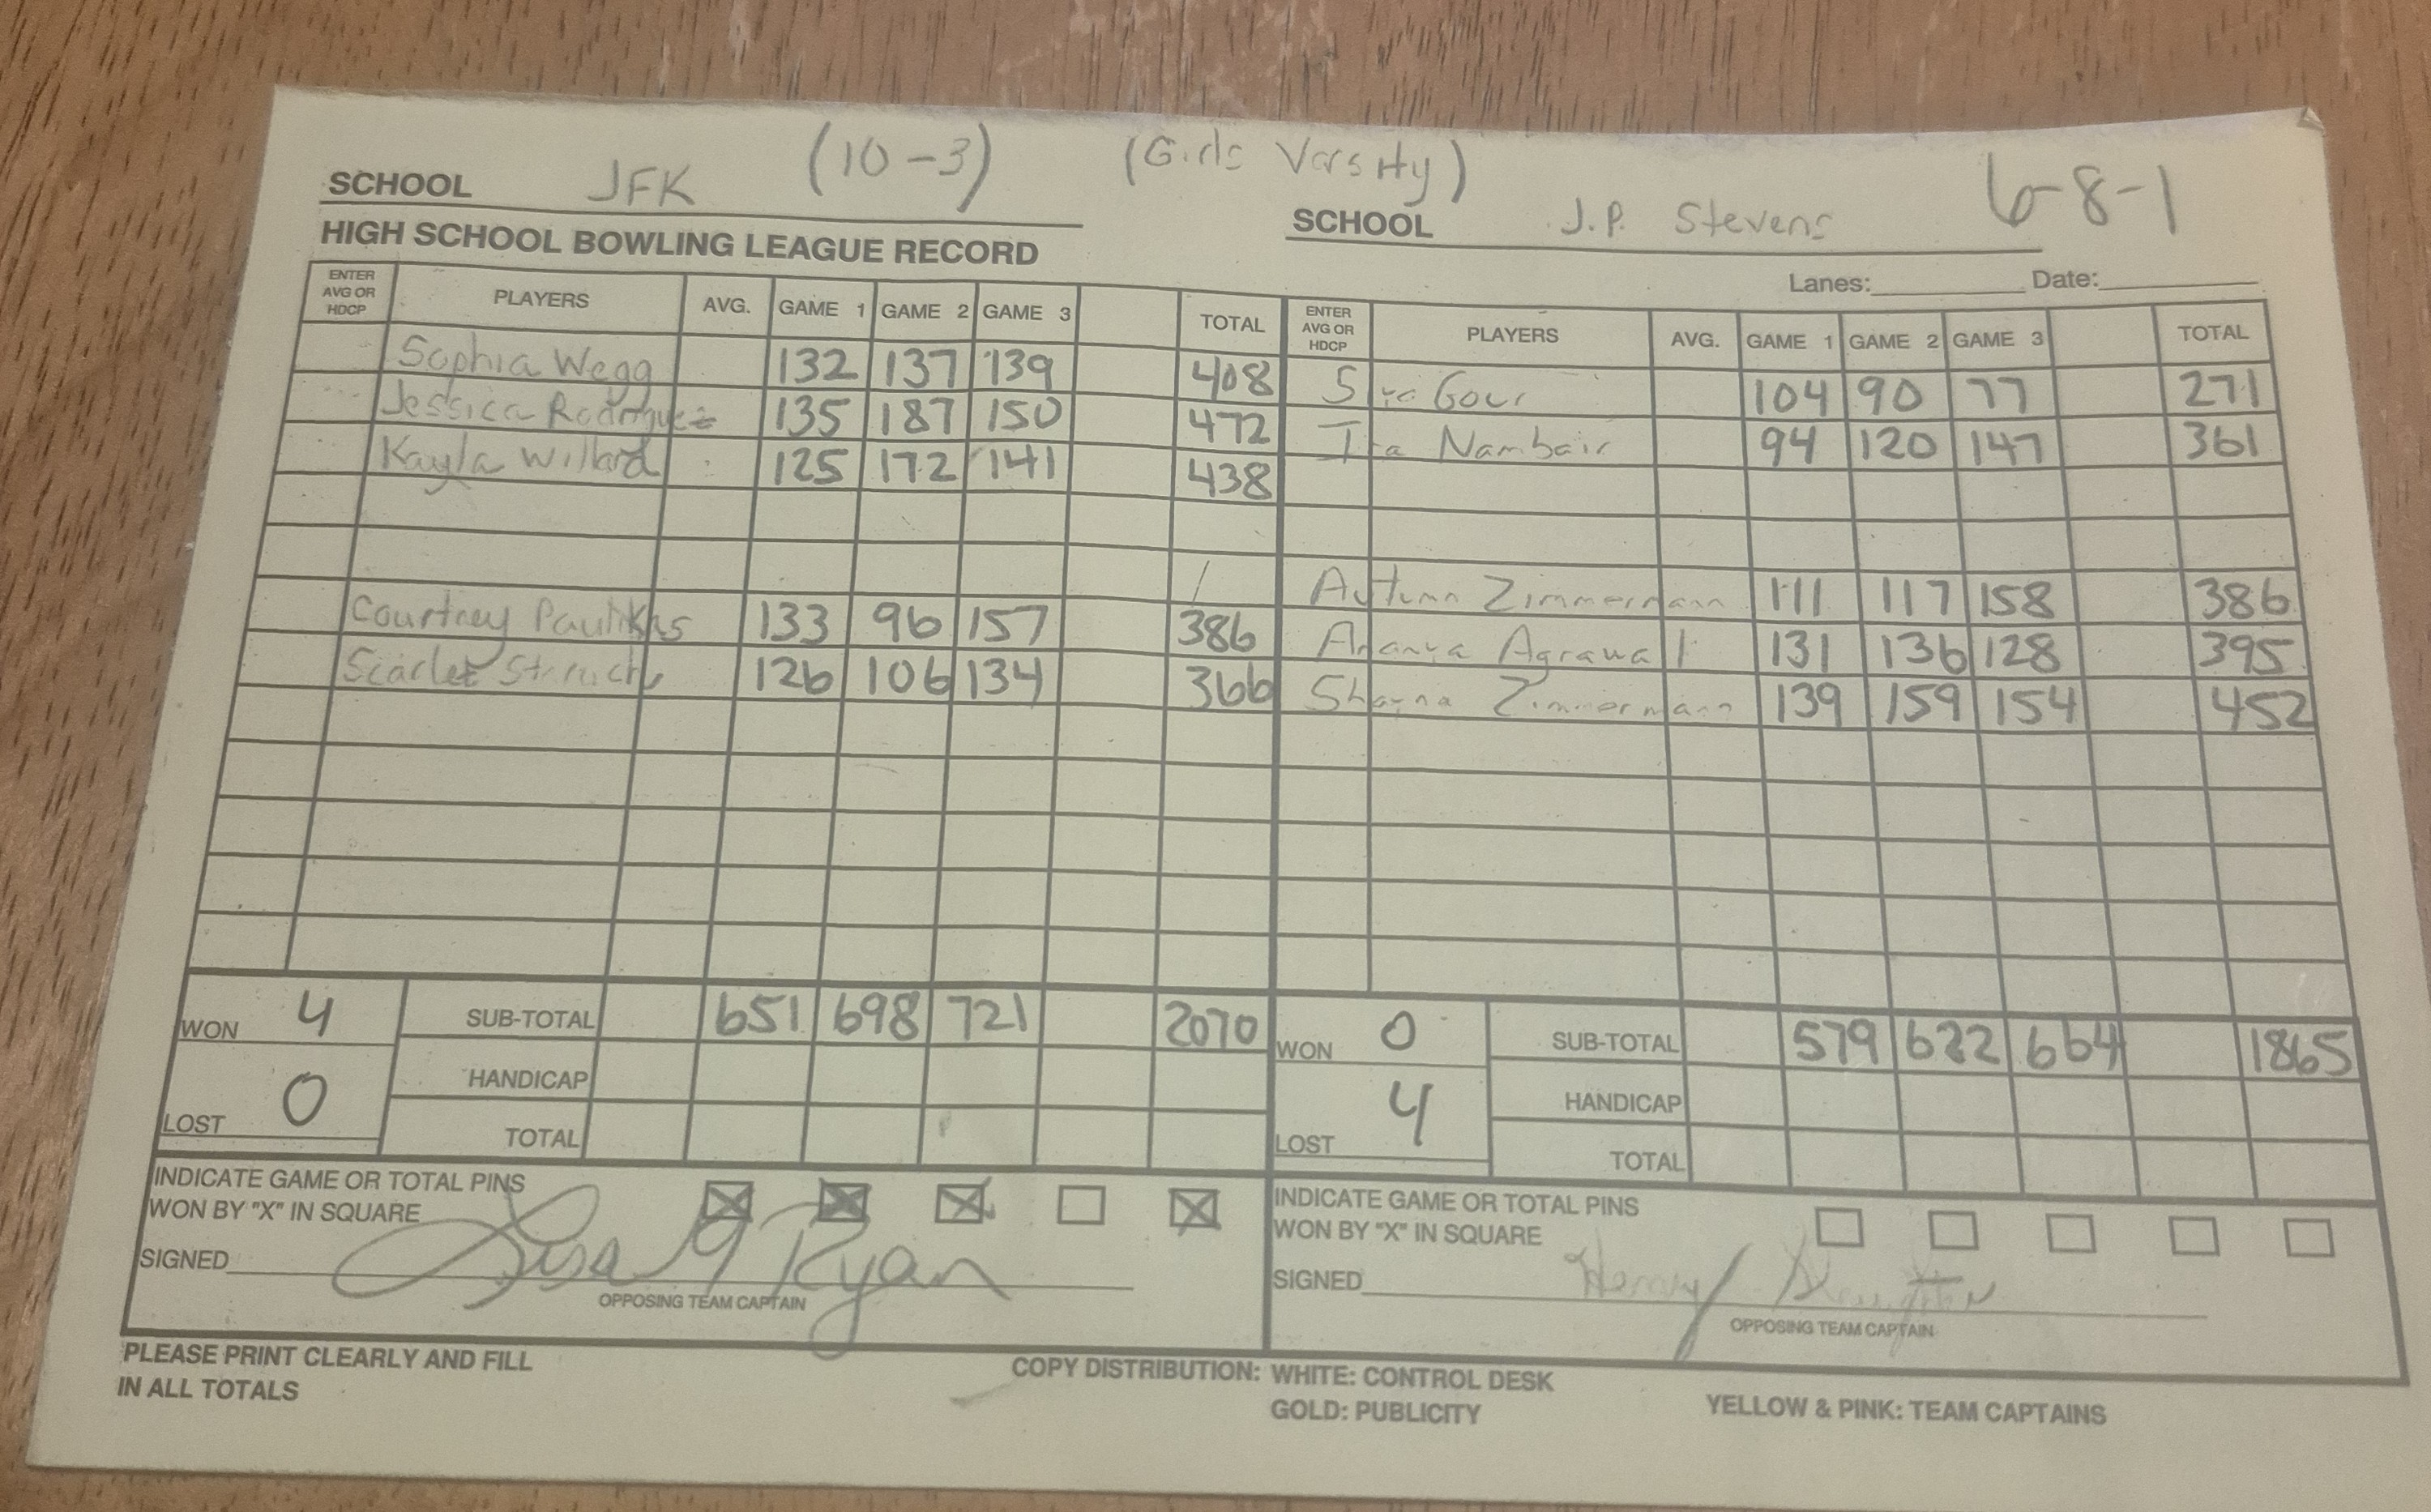 (10-3) (Girls Varsity) 6-8-1
SCHOOL JFK SCHOOL J.P. Stevens
HIGH SCHOOL BOWLING LEAGUE RECORD
Lanes: Date:
ENTER AVG OR HDCP PLAYERS AVG. GAME 1 GAME 2 GAME 3 TOTAL ENTER AVG OR HDCP PLAYERS AVG. GAME 1 GAME 2 GAME 3 TOTAL
Sophia Wegg 132 137 139 408 Gour 104 90 77 271
Jessica Rodriguez 135 187 150 472 Nambair 94 120 147 361
Kayla Willard 125 172 141 438
Autumn Zimmermann 111 117 158 386
Courtney Paulikas 133 96 157 386 Ananya Agrawal 131 136 128 395
Scarlet 126 106 134 366 Shayna Zimmermann 139 159 154 452
WON 4 SUB-TOTAL 651 698 721 2070 WON 0 SUB-TOTAL 579 622 664 1865
HANDICAP HANDICAP
LOST 0 TOTAL LOST 4 TOTAL
INDICATE GAME OR TOTAL PINS INDICATE GAME OR TOTAL PINS
WON BY "X" IN SQUARE X X X X WON BY "X" IN SQUARE
SIGNED Lisa Ryan SIGNED Henry
OPPOSING TEAM CAPTAIN OPPOSING TEAM CAPTAIN
PLEASE PRINT CLEARLY AND FILL
IN ALL TOTALS
COPY DISTRIBUTION: WHITE: CONTROL DESK
GOLD: PUBLICITY YELLOW & PINK: TEAM CAPTAINS